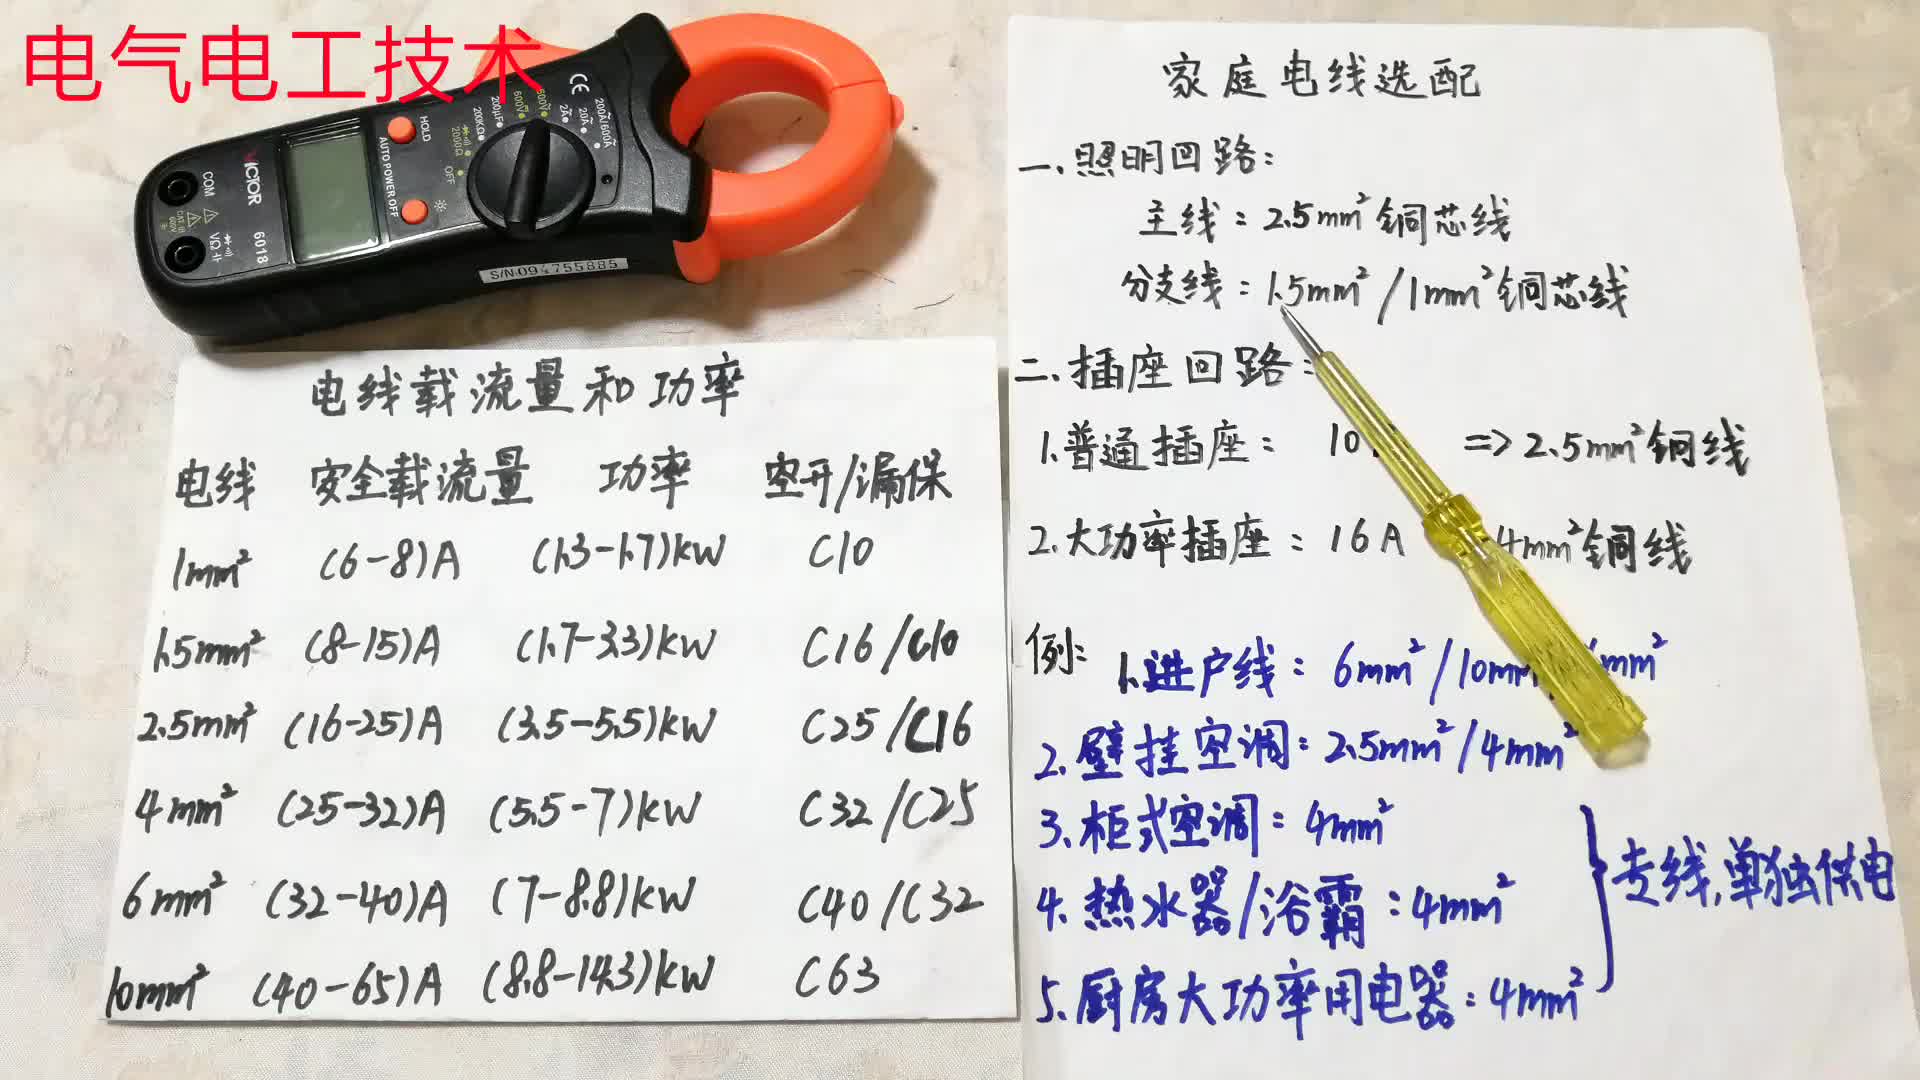 电气电工技术
200A/600A
20A
2A
500V
600V
200μF
200KΩ
2000Ω
OFF
CE
HOLD
AUTO POWER OFF
VICTOR
6018
COM
VΩ
S/N:094755885
电线载流量和功率
电线 安全载流量 功率 空开/漏保
1mm² (6-8)A (1.3-1.7)kW C10
1.5mm² (8-15)A (1.7-3.3)kW C16/C10
2.5mm² (16-25)A (3.5-5.5)kW C25/C16
4mm² (25-32)A (5.5-7)kW C32/C25
6mm² (32-40)A (7-8.8)kW C40/C32
10mm² (40-65)A (8.8-14.3)kW C63
家庭电线选配
一、照明回路:
主线:2.5mm²铜芯线
分支线:1.5mm²/1mm²铜芯线
二、插座回路:
1.普通插座: 10 => 2.5mm²铜线
2.大功率插座:16A 4mm²铜线
例: 1.进户线:6mm²/10mm mm²
2.壁挂空调:2.5mm²/4mm²
3.柜式空调:4mm²
4.热水器/浴霸:4mm²
5.厨房大功率用电器:4mm²
专线,单独供电